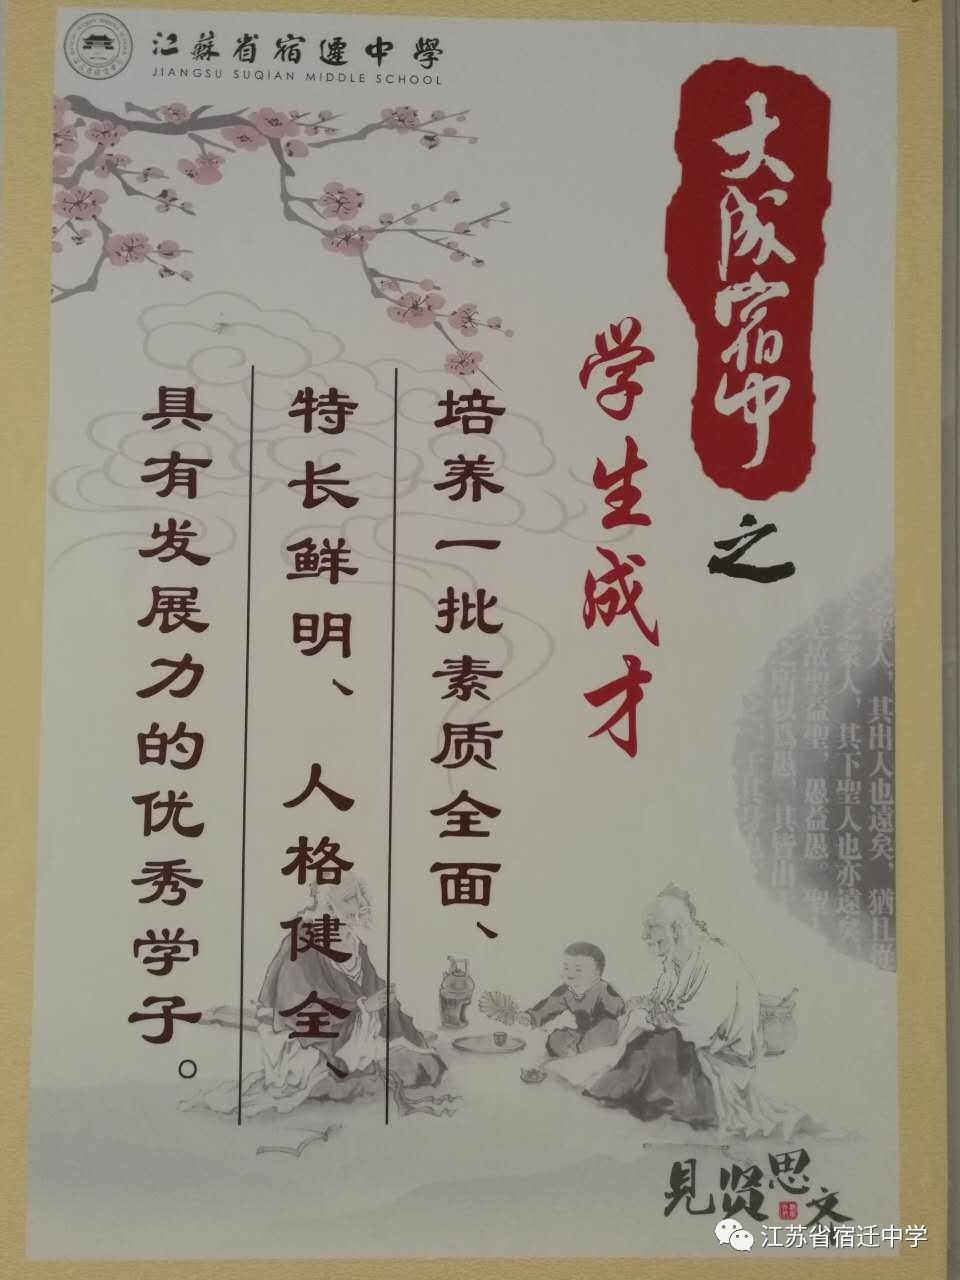 江蘇省宿遷中學
JIANGSU SUQIAN MIDDLE SCHOOL
大成宿中
之
学生成才
培养一批素质全面、
特长鲜明、人格健全、
具有发展力的优秀学子。
聖人，其出人也遠矣，猶且從
之眾人，其下聖人也亦遠矣，
是故聖益聖，愚益愚。聖
之所以為愚，其皆出
見贤思文
江苏省宿迁中学